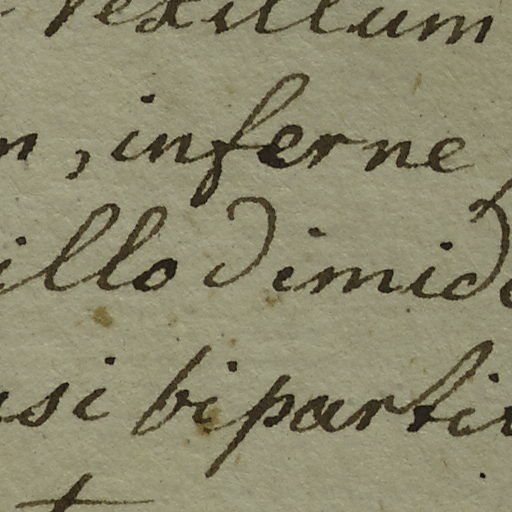 Vexillum
n, inferne
illo dimid
usi biparti